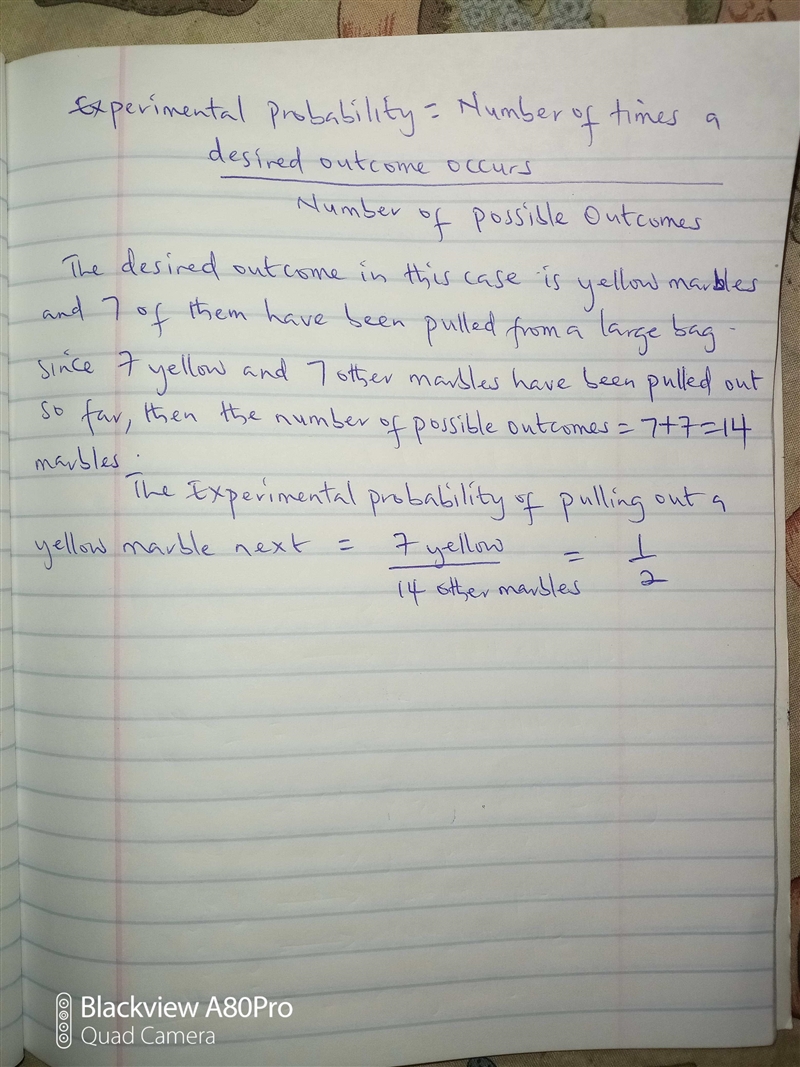 Experimental Probability = Number of times a
desired outcome occurs
Number of possible Outcomes
The desired outcome in this case is yellow marbles
and 7 of them have been pulled from a large bag.
Since 7 yellow and 7 other marbles have been pulled out
so far, then the number of possible outcomes = 7+7=14
marbles.
The Experimental probability of pulling out a
yellow marble next = 7 yellow = 1
14 other marbles 2
Blackview A80Pro
Quad Camera